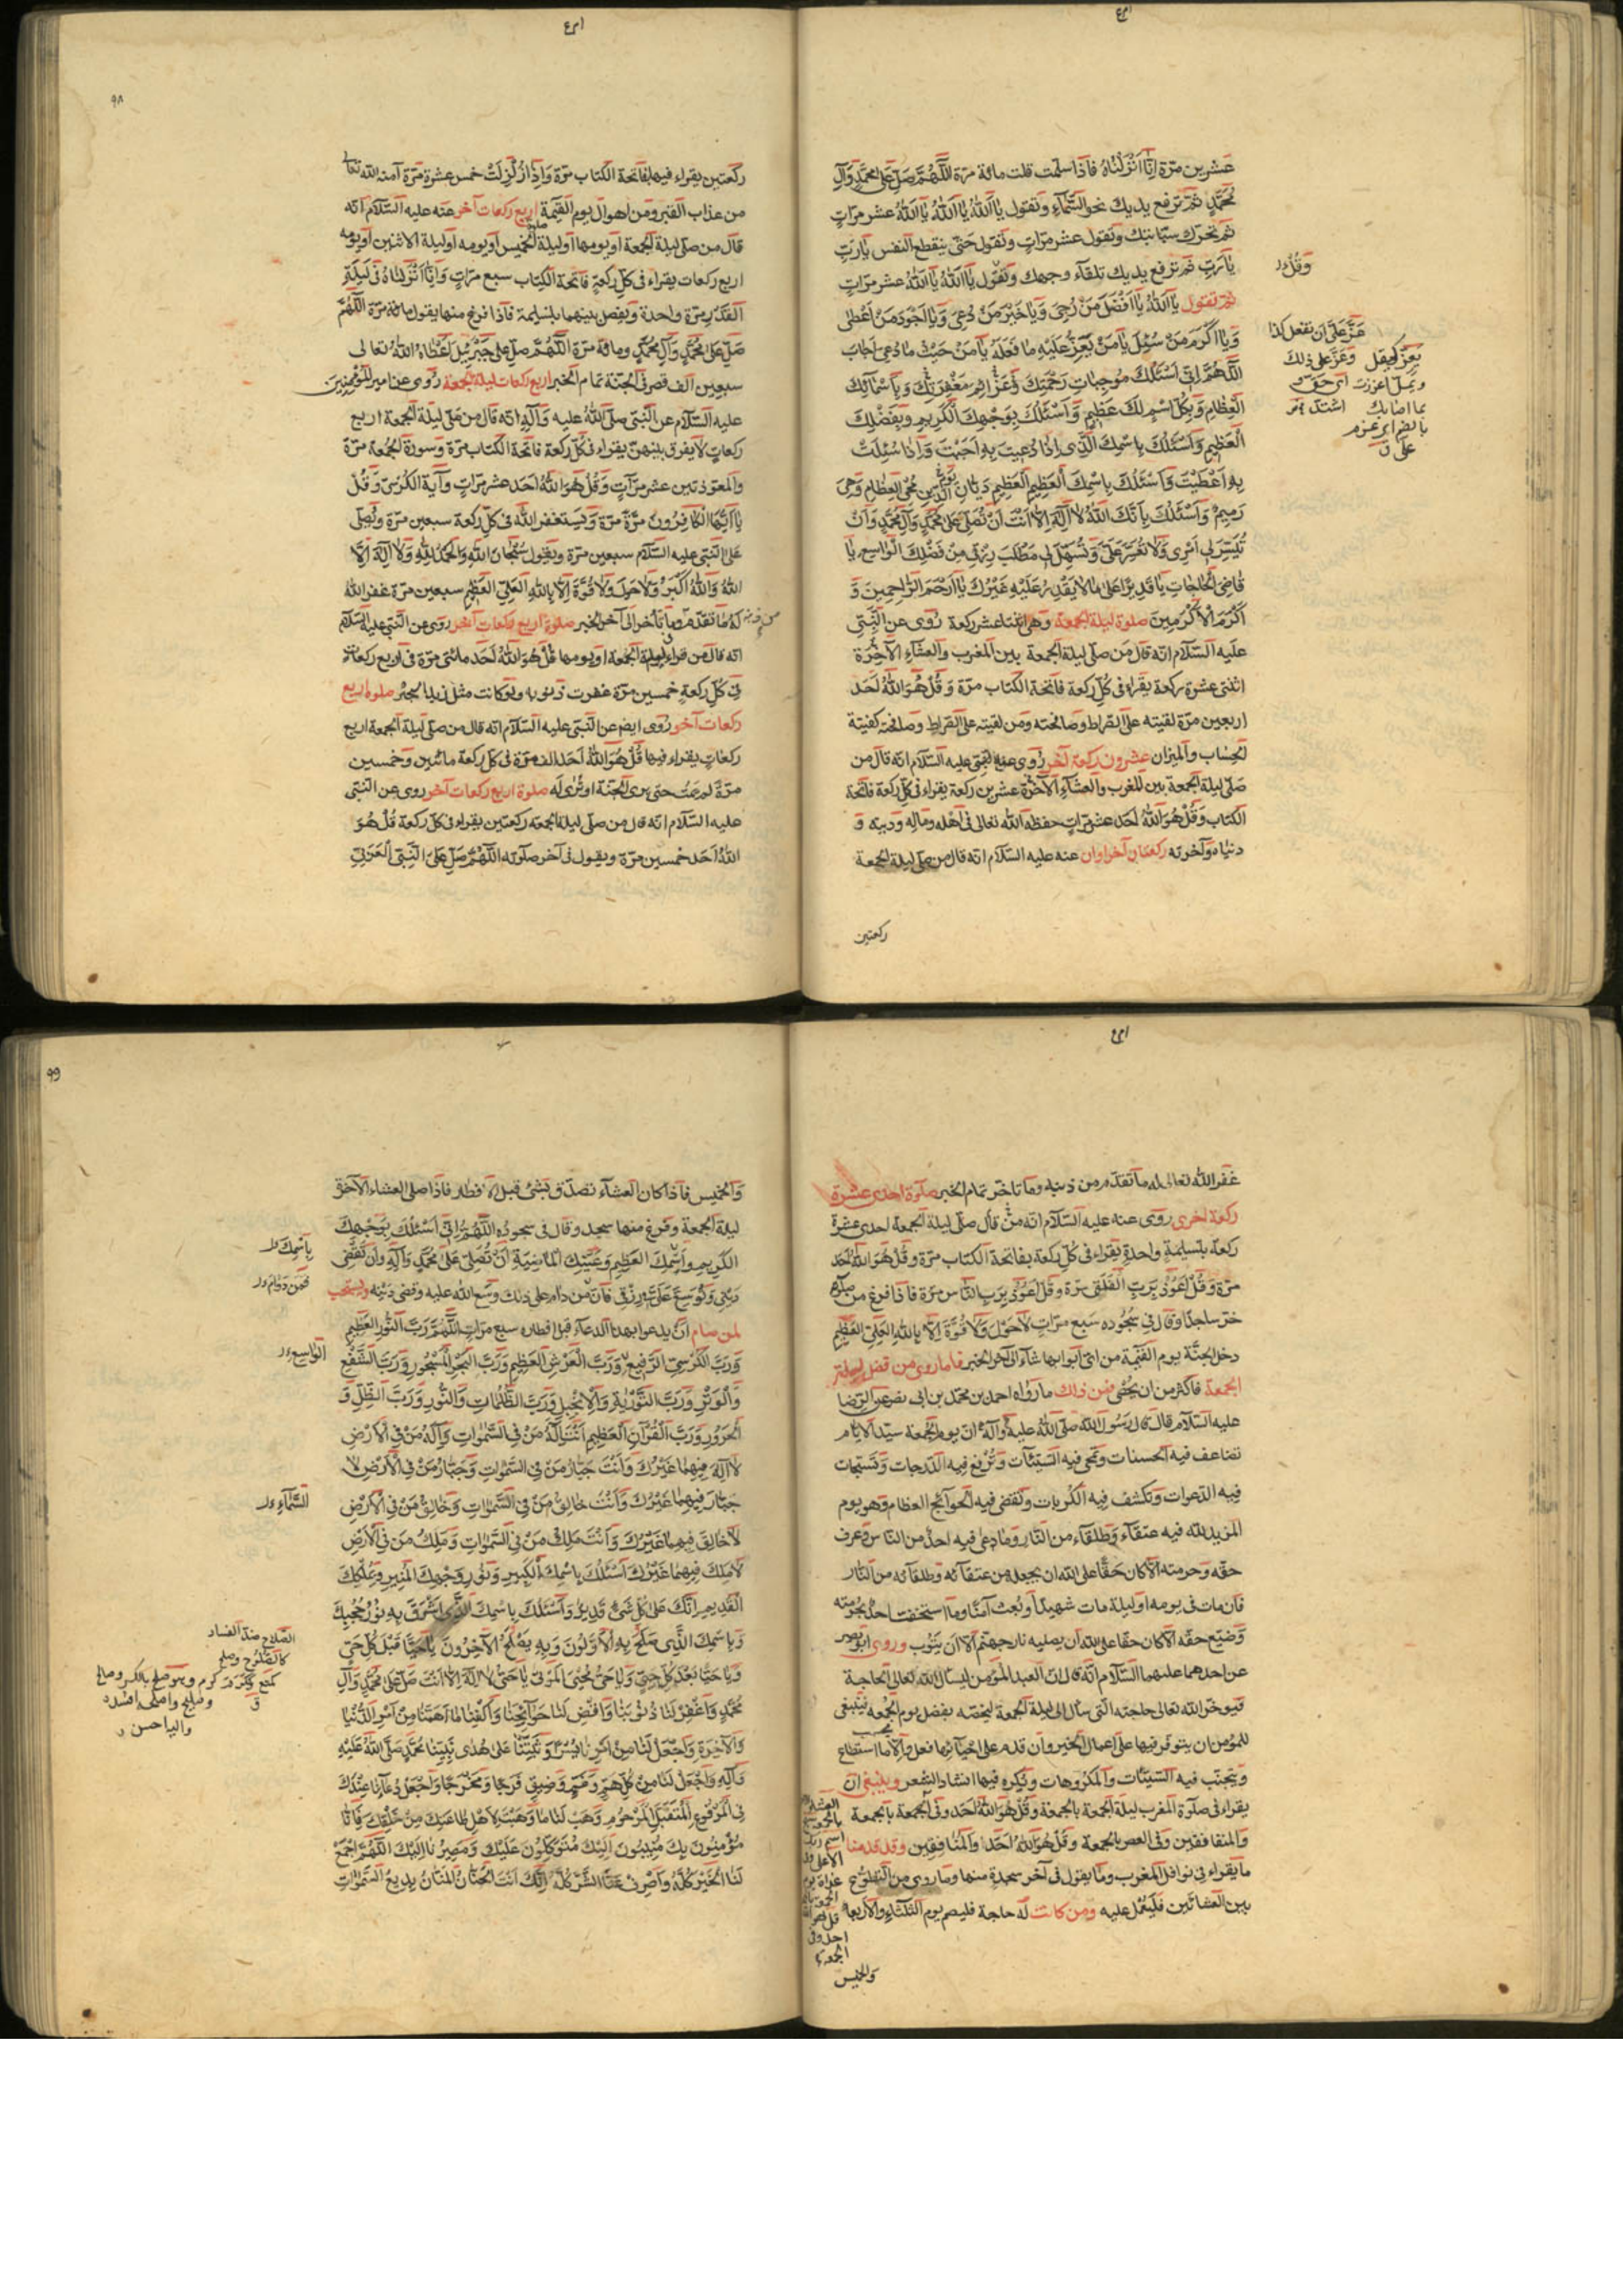 عشرين مرّة اِنّا اَنْزَلْناهُ فاذا سلّمت قلت مائة مرّة اَللّٰهُمَّ صَلِّ عَلىٰ مُحَمَّدٍ وَآلِ
مُحَمَّدٍ ثمّ ترفع يديك نحو السّمآء وتقول يا اَللّٰهُ يا اَللّٰهُ يا اَللّٰهُ عشر مرّاتٍ
ثم تحرّك سبّابتك وتقول عشر مرّاتٍ وتقول حتّى ينقطع النفس يارَبِّ
يارَبِّ ثم ترفع يديك تلقآء وجهك وتقول يا اَللّٰهُ يا اَللّٰهُ عشر مرّاتٍ
ثمّ تقول يا اَللّٰهُ يا اَفْضَلَ مَنْ رُجِىَ وَيا خَيْرَ مَنْ دُعِىَ وَيا اَجْوَدَ مَنْ اَعْطىٰ
وَيا اَكْرَمَ مَنْ سُئِلَ يا مَنْ يَعِزُّ عَلَيْهِ ما فَعَلَهُ يا مَنْ حَيْثُ ما دُعِىَ اَجابَ
اَللّٰهُمَّ اِنّى اَسْئَلُكَ مُوجِباتِ رَحْمَتِكَ وَعَزآئِمَ مَغْفِرَتِكَ وَبِاَسْمآئِكَ
الْعِظامِ وَبِكُلِّ اسْمٍ لَكَ عَظيمٍ وَاَسْئَلُكَ بِوَجْهِكَ الْكَريمِ وَبِفَضْلِكَ
الْعَظيمِ وَاَسْئَلُكَ بِاسْمِكَ الَّذى اِذا دُعيتَ بِهِ اَجَبْتَ وَاِذا سُئِلْتَ
بِهِ اَعْطَيْتَ وَاَسْئَلُكَ بِاسْمِكَ الْعَظيمِ الْعَظيمِ دَيّانِ يَوْمِ الدّينِ مُحْيِى الْعِظامِ وَهِىَ
رَميمٌ وَاَسْئَلُكَ بِاَنَّكَ اللّٰهُ لا اِلٰهَ اِلّا اَنْتَ اَنْ تُصَلِّىَ عَلىٰ مُحَمَّدٍ وَآلِ مُحَمَّدٍ وَاَنْ
تُيَسِّرَ لى اَمْرى وَلا تُعَسِّرَ عَلَىَّ وَتُسَهِّلَ لى مَطْلَبَ رِزْقى مِنْ فَضْلِكَ الْواسِعِ يا
قاضِىَ الْحاجاتِ يا قَديرًا عَلىٰ ما لا يَقْدِرُ عَلَيْهِ غَيْرُكَ يا اَرْحَمَ الرّاحِمينَ وَ
اَكْرَمَ الْاَكْرَمينَ صلوة ليلة الجمعة وهى اثنتا عشر ركعة رُوى عن النَّبىّ
عليه السّلام انّه قال من صلّى ليلة الجمعة بين المغرب والعشآء الآخِرَة
اثنتى عشرة ركعة يقراء فى كلّ ركعة فاتحة الكتاب مرّة وَقُلْ هُوَ اللّٰهُ اَحَد
اربعين مرّة لقيته على الصّراط وصافحته ومن لقيته على الصّراط وصافحته كفيته
الحساب والميزان عشرون ركعة اُخر رُوى عن النّبىّ عليه السّلام انّه قال من
صلّى ليلة الجمعة بين المغرب والعشآء الآخرة عشرين ركعة يقراء فى كلّ ركعة فاتحة
الكتاب وَقُلْ هُوَ اللّٰهُ اَحَد عشر مرّاتٍ حفظه اللّه تعالى فى اهله وماله ودينه و
دنياه وآخرته ركعتان اُخراوان عنه عليه السّلام انّه قال من صلّى ليلة الجمعة
ركعتين
وَقُلْ
عَزَّ عَلَىَّ اَن تفعل كذا
وعَزَّ علىّ ذلك
٩٨
ركعتين يقراء فيهما بفاتحة الكتاب مرّة وَاِذا زُلْزِلَتْ خمس عشرة مرّة آمنه اللّه تعالى
من عذاب القبر ومن اهوال يوم القيٰمة اربع ركعات اُخر عنه عليه السّلام انّه
قال من صلّى ليلة الجمعة او يومها او ليلة الخميس او يومه او ليلة الاثنين او يومه
اربع ركعات يقراء فى كلّ ركعةٍ فاتحة الكتاب سبع مرّاتٍ وَاِنّا اَنْزَلْناهُ فى لَيْلَةِ
الْقَدْرِ مرّة واحدة ويفصل بينهما بتسليمة فاذا فرغ منها يقول مائة مرّة اَللّٰهُمَّ
صَلِّ عَلىٰ مُحَمَّدٍ وَآلِ مُحَمَّدٍ ومائة مرّة اَللّٰهُمَّ صَلِّ عَلىٰ جَبْرَئيلَ اعطاهُ اللّٰهُ تعالى
سبعين الف قصر فى الجنّة تمام الخبر اربع ركعات ليلة الجمعة رُوى عن امير المؤمنين
عليه السّلام عن النّبىّ صلّى اللّٰهُ عليه وَآلِهِ انّه قال من صلّى ليلة الجمعة اربع
ركعاتٍ لا يفرق بينهنّ يقراء فى كلّ ركعة فاتحة الكتاب مرّة وسورة الجمعة مرّة
والمعوّذتين عشر مرّاتٍ وَقُلْ هُوَ اللّٰهُ اَحَد عشر مرّاتٍ وآية الكرسىّ وَقُلْ
يا اَيُّهَا الْكافِرُونَ مرّةً مرّة وَيستغفر اللّه فى كلّ ركعة سبعين مرّة ويُصلّى
على النّبىّ عليه السّلام سبعين مرّة ويقول سُبْحانَ اللّٰهِ وَالْحَمْدُ لِلّٰهِ وَلا اِلٰهَ اِلَّا
اللّٰهُ وَاللّٰهُ اَكْبَرُ وَلا حَوْلَ وَلا قُوَّةَ اِلّا بِاللّٰهِ الْعَلِىِّ الْعَظيمِ سبعين مرّة غفر اللّهُ
له ما تقدّم من ذنبه وما تأخر الى آخر الخبر صلوة اربع ركعات اُخر روى عن النّبىّ عليه السّلام
انّه قال من قراء فى ليلة الجمعة او يومها قُلْ هُوَ اللّٰهُ اَحَد مائتى مرّة فى اربع ركعات
فى كلّ ركعةٍ خمسين مرّة غفرت ذنوبه ولو كانت مثل زبد البحر صلوة اربع
ركعات اُخر رُوى ايضا عن النّبىّ عليه السّلام انّه قال من صلّى ليلة الجمعة اربع
ركعاتٍ يقراء فيها قُلْ هُوَ اللّٰهُ اَحَد الف مرّة فى كلّ ركعة مائتين وخمسين
مرّة لم يمت حتى يرى الجنّة او تُرٰى له صلوة اربع ركعات اُخر روى عن النّبىّ
عليه السّلام انّه قال من صلّى ليلة الجمعة ركعتين يقراء فى كلّ ركعة قُلْ هُوَ
اللّٰهُ اَحَد خمسين مرّة ويقول فى آخر صلوته اَللّٰهُمَّ صَلِّ عَلَى النَّبِىِّ الْعَرَبِىِّ
غفر اللّه تعالى له ما تقدّم من ذنبه وما تاخّر تمام الخبر صلوة احدى عشرة
ركعة اُخرى روى عنه عليه السّلام انّه قال من صلّى ليلة الجمعة احدى عشرة
ركعة بتسليمةٍ واحدةٍ يقراء فى كلّ ركعة بفاتحة الكتاب مرّة وَقُلْ هُوَ اللّٰهُ اَحَد
مرّة وَقُلْ اَعُوذُ بِرَبِّ الْفَلَقِ مرّة وَقُلْ اَعُوذُ بِرَبِّ النّاسِ مرّة فاذا فرغ من صلوته
خرّ ساجدًا وقال فى سجوده سَبع مرّاتٍ لا حَوْلَ وَلا قُوَّةَ اِلّا بِاللّٰهِ الْعَلِىِّ الْعَظيمِ
دخل الجنّة يوم القيٰمة من اىّ ابوابها شآء الى آخر الخبر فاما روى من فضل ليلة
الجمعة فاكثر من ان يُحْصٰى فمن ذلك ما رواه احمد بن محمّد بن ابى نصر عن الرّضا
عليه السّلام قال قال رسول اللّه صلّى اللّٰهُ عليه وآله انّ يوم الجمعة سيّد الايّام
تضاعف فيه الحسنات وتمحى فيه السّيّئات وتُرفع فيه الدّرجات وتستجاب
فيه الدّعوات وتكشف فيه الكُربات وتقضى فيه الحوآئج العظام وهو يوم
المزيد للّه فيه عتقآء وطلقآء من النّار وما دعى فيه احدٌ من النّاس وعرف
حقّه وحرمته الّا كان حقًّا على اللّه ان يجعله من عتقآئه وطلقآئه من النّار
فان مات فى يومه او ليلته مات شهيدًا وبُعث آمنًا وما استخفّ احدٌ بحرمته
وضيّع حقّه الّا كان حقًّا على اللّه ان يصليه نار جهنّم الّا ان يتوب وروى ابو بصير
عن احدهما عليهما السّلام انّه قال انّ العبد المؤمن ليسأل اللّه تعالى الحاجة
فيؤخّر اللّه تعالى حاجته الّتى سأل الى ليلة الجمعة ليخصّه بفضل يوم الجمعة فينبغى
للمؤمن ان يتوفّر فيها على اعمال الخير وان قدم على احيآئها فعل والّا ما استطاع
ويتجنّب فيه السّيّئات والمكروهات ويُكره فيها انشاد الشّعر وينبغى ان
يقراء فى صلوة المغرب ليلة الجمعة بالجمعة وَقُلْ هُوَ اللّٰهُ اَحَد وفى الجمعة بالجمعة
والمنافقين وفى العصر بالجمعة وَقُلْ هُوَ اللّٰهُ اَحَد والمنافقين وقد قدّمنا
ما يقراء فى نوافل المغرب وما يقول فى آخر سجدة منها وما روى من التّطوّع
بين العشائين فليعمل عليه ومن كانت له حاجة فليصم يوم الثّلثاء والاربعاء
والخميس
٩٩
وَالخميس فاذا كان العشآء تصدّق بشئ قبل الافطار فاذا صلّى العشاء الآخرة
ليلة الجمعة وفرغ منها سجد وقال فى سجوده اَللّٰهُمَّ اِنّى اَسْئَلُكَ بِوَجْهِكَ
الْكَريمِ وَاسْمِكَ الْعَظيمِ وَعَيْنِكَ الْماضِيَةِ اَنْ تُصَلِّىَ عَلىٰ مُحَمَّدٍ وَآلِهِ وَاَنْ تَقْضِىَ
دَيْنى وَتُوَسِّعَ عَلَىَّ فى رِزْقى فانّ من دام على ذلك وسّع اللّه عليه وقضى دَينه ويستحب
لمن صام ان يدعو بهذا الدعآء قبل افطاره سبع مرّاتٍ اَللّٰهُمَّ رَبَّ النُّورِ الْعَظيمِ
وَرَبَّ الْكُرْسِىِّ الرَّفيعِ وَرَبَّ الْعَرْشِ الْعَظيمِ وَرَبَّ الْبَحْرِ الْمَسْجُورِ وَرَبَّ الشَّفْعِ
وَالْوَتْرِ وَرَبَّ التَّوْرٰيةِ وَالْاِنْجيلِ وَرَبَّ الظُّلُماتِ وَالنُّورِ وَرَبَّ الظِّلِّ وَ
الْحَرُورِ وَرَبَّ الْقُرْآنِ الْعَظيمِ اَنْتَ اِلٰهُ مَنْ فِى السَّمٰواتِ وَاِلٰهُ مَنْ فِى الْاَرْضِ
لا اِلٰهَ فيهِما غَيْرُكَ وَاَنْتَ جَبّارُ مَنْ فِى السَّمٰواتِ وَجَبّارُ مَنْ فِى الْاَرْضِ لا
جَبّارَ فيهِما غَيْرُكَ وَاَنْتَ خالِقُ مَنْ فِى السَّمٰواتِ وَخالِقُ مَنْ فِى الْاَرْضِ
لا خالِقَ فيهِما غَيْرُكَ وَاَنْتَ مَلِكُ مَنْ فِى السَّمٰواتِ وَمَلِكُ مَنْ فِى الْاَرْضِ
لا مَلِكَ فيهِما غَيْرُكَ اَسْئَلُكَ بِاسْمِكَ الْكَبيرِ وَنُورِ وَجْهِكَ الْمُنيرِ وَمُلْكِكَ
الْقَديمِ اِنَّكَ عَلىٰ كُلِّ شَىْءٍ قَديرٌ وَاَسْئَلُكَ بِاسْمِكَ الَّذى اَشْرَقَ بِهِ نُورُ حُجُبِكَ
وَبِاسْمِكَ الَّذى صَلَحَ بِهِ الْاَوَّلُونَ وَبِهِ يَصْلَحُ الْآخِرُونَ يا حَيًّا قَبْلَ كُلِّ حَىٍّ
وَيا حَيًّا بَعْدَ كُلِّ حَىٍّ وَيا حَىُّ مُحْيِىَ الْمَوْتىٰ يا حَىُّ لا اِلٰهَ اِلّا اَنْتَ صَلِّ عَلىٰ مُحَمَّدٍ وَآلِ
مُحَمَّدٍ وَاغْفِرْ لَنا ذُنُوبَنا وَاقْضِ لَنا حَوآئِجَنا وَاكْفِنا ما اَهَمَّنا مِنْ اَمْرِ الدُّنْيا
وَالْآخِرَةِ وَاجْعَلْ لَنا مِنْ اَمْرِنا يُسْرًا وَثَبِّتْنا عَلىٰ هُدٰى نَبِيِّنا مُحَمَّدٍ صَلَّى اللّٰهُ عَلَيْهِ
وَآلِهِ وَاجْعَلْ لَنا مِنْ كُلِّ هَمٍّ وَغَمٍّ وَضيقٍ فَرَجًا وَمَخْرَجًا وَاجْعَلْ دُعآءَنا عِنْدَكَ
فِى الْمَرْفُوعِ الْمُتَقَبَّلِ الْمَرْحُومِ وَهَبْ لَنا ما وَهَبْتَ لِاَهْلِ طاعَتِكَ مِنْ خَلْقِكَ فَاِنّا
مُؤْمِنُونَ بِكَ مُنيبُونَ اِلَيْكَ مُتَوَكِّلُونَ عَلَيْكَ وَمَصيرُنا اِلَيْكَ اَللّٰهُمَّ اجْمَعْ
لَنَا الْخَيْرَ كُلَّهُ وَاصْرِفْ عَنَّا الشَّرَّ كُلَّهُ اِنَّكَ اَنْتَ الْحَنّانُ الْمَنّانُ بَديعُ السَّمٰواتِ
بِاسْمِكَ
الْواسِعِ
السَّمآءِ
الصّلاح ضدّ الفساد